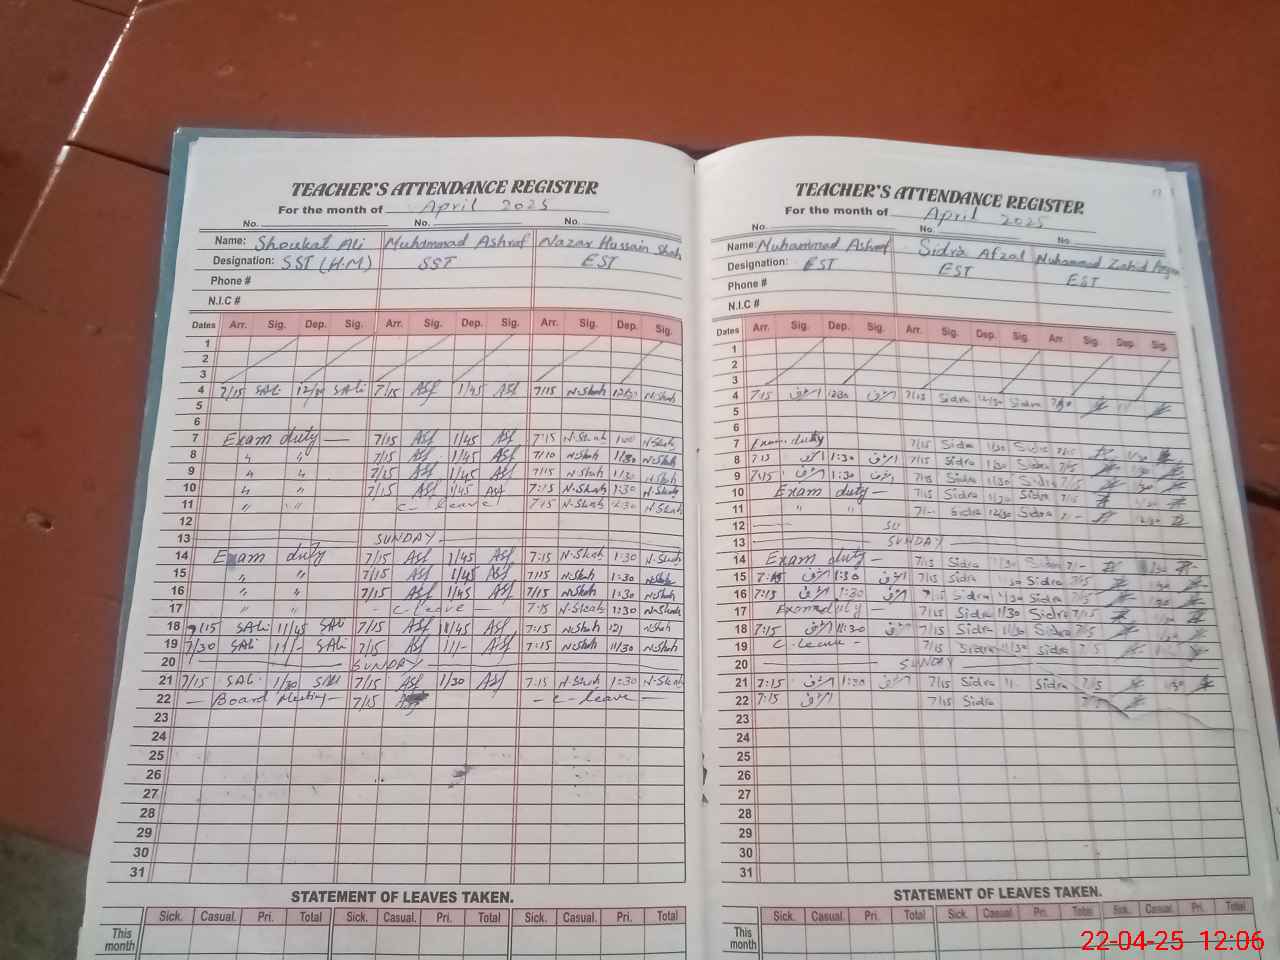 TEACHER'S ATTENDANCE REGISTER
For the month of April 2025
No. No. No.
Name: Shoukat Ali Muhammad Ashraf Nazar Hussain Shah
Designation: SST (H.M) SST EST
Phone #
N.I.C #
Dates Arr. Sig. Dep. Sig. Arr. Sig. Dep. Sig. Arr. Sig. Dep. Sig.
1
2
3
4 7/15 SAli 12/30 SAli 7/15 Asf 1/45 Asf 7/15 N.Shah 12/30 N.Shah
5
6
7 Exam duty — 7/15 Asf 1/45 Asf 7:15 N.Shah 1:00 N.Shah
8 " " 7/15 Asf 1/45 Asf 7/10 N.Shah 1/30 N.Shah
9 " " 7/15 Asf 1/45 Asf 7/15 N.Shah 1/30 N.Shah
10 " " 7/15 Asf 1/45 Asf 7:15 N.Shah 1:30 N.Shah
11 " " C- leave 7:15 N.Shah 12:30 N.Shah
12
13 SUNDAY
14 Exam duty 7/15 Asf 1/45 Asf 7:15 N.Shah 1:30 N.Shah
15 " " 7/15 Asf 1/45 Asf 7:15 N.Shah 1:30 N.Shah
16 " " 7/15 Asf 1/45 Asf 7/15 N.Shah 1:30 N.Shah
17 " " - C-leave - 7:15 N.Shah 1:30 N.Shah
18 7/15 SAli 11/45 SAli 7/15 Asf 11/45 Asf 7:15 N.Shah N.Shah
19 7/30 SAli 11/- SAli 7/15 Asf 11/- Asf 7:15 N.Shah 11/30 N.Shah
20 SUNDAY
21 7/15 SAli 1/30 SAli 7/15 Asf 1/30 Asf 7:15 N.Shah 1:30 N.Shah
22 — Board Meeting — 7/15 — C-leave —
23
24
25
26
27
28
29
30
31
STATEMENT OF LEAVES TAKEN.
Sick. Casual. Pri. Total Sick. Casual. Pri. Total Sick. Casual. Pri. Total
This month
TEACHER'S ATTENDANCE REGISTER
For the month of April 2025
No. No. No.
Name: Muhammad Ashraf Sidra Afzal Muhammad Zahid
Designation: EST EST EST
Phone #
N.I.C #
Dates Arr. Sig. Dep. Sig. Arr. Sig. Dep. Sig. Arr. Sig. Dep. Sig.
1
2
3
4 7:15 اشرف 12:30 اشرف 7/15 Sidra 12/30 Sidra
5
6
7 Exam duty 7/15 Sidra 1/30 Sidra 7/15
8 7:15 اشرف 1:30 اشرف 7/15 Sidra 1/30 Sidra 7/15 1/30
9 7:15 اشرف 1:30 اشرف 7/15 Sidra 1/30 Sidra 7/15 1/30
10 Exam duty — 7/15 Sidra 1/30 Sidra 7/15
11 " " 7/- Sidra 12/30 Sidra 7/-
12
13 SUNDAY
14 Exam duty — 7/15 Sidra 1/30 Sidra 7/- 1/30
15 7:15 اشرف 1:30 اشرف 7/15 Sidra 1/30 Sidra 7/15
16 7:15 اشرف 1:30 اشرف 7/15 Sidra 1/30 Sidra 7/15
17 Exam duty — 7/15 Sidra 1/30 Sidra 7/15
18 7:15 اشرف 11:30 اشرف 7/15 Sidra 11/30 Sidra 7/15
19 C-leave - 7/15 Sidra 11/30 Sidra 7/15
20 SUNDAY
21 7:15 اشرف 1:30 اشرف 7/15 Sidra Sidra 7/15 1/30
22 7:15 اشرف 7/15 Sidra 7/15
23
24
25
26
27
28
29
30
31
STATEMENT OF LEAVES TAKEN.
Sick. Casual. Pri. Total Sick. Casual. Pri. Total Sick. Casual. Pri. Total
This month
22-04-25 12:06